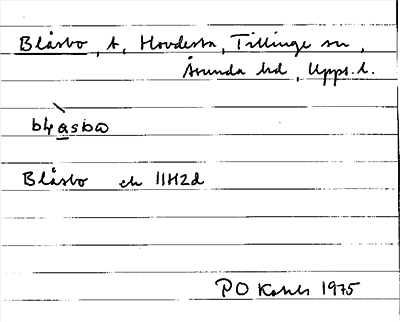 Blåsbo, t, Hovdesta, Tillinge sn,
Åsunda hd, Upps. l.
Blåsbo ek 11H2d
PO 1975